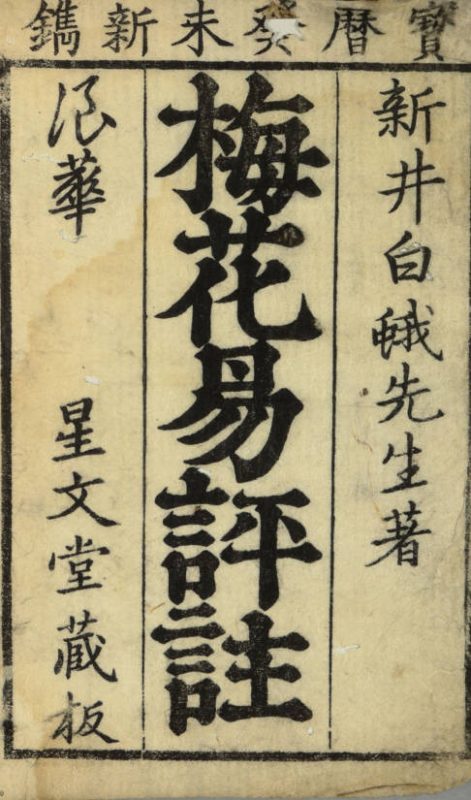 寶曆癸未新鐫
新井白蛾先生著
梅花易評註
浪華 星文堂藏板